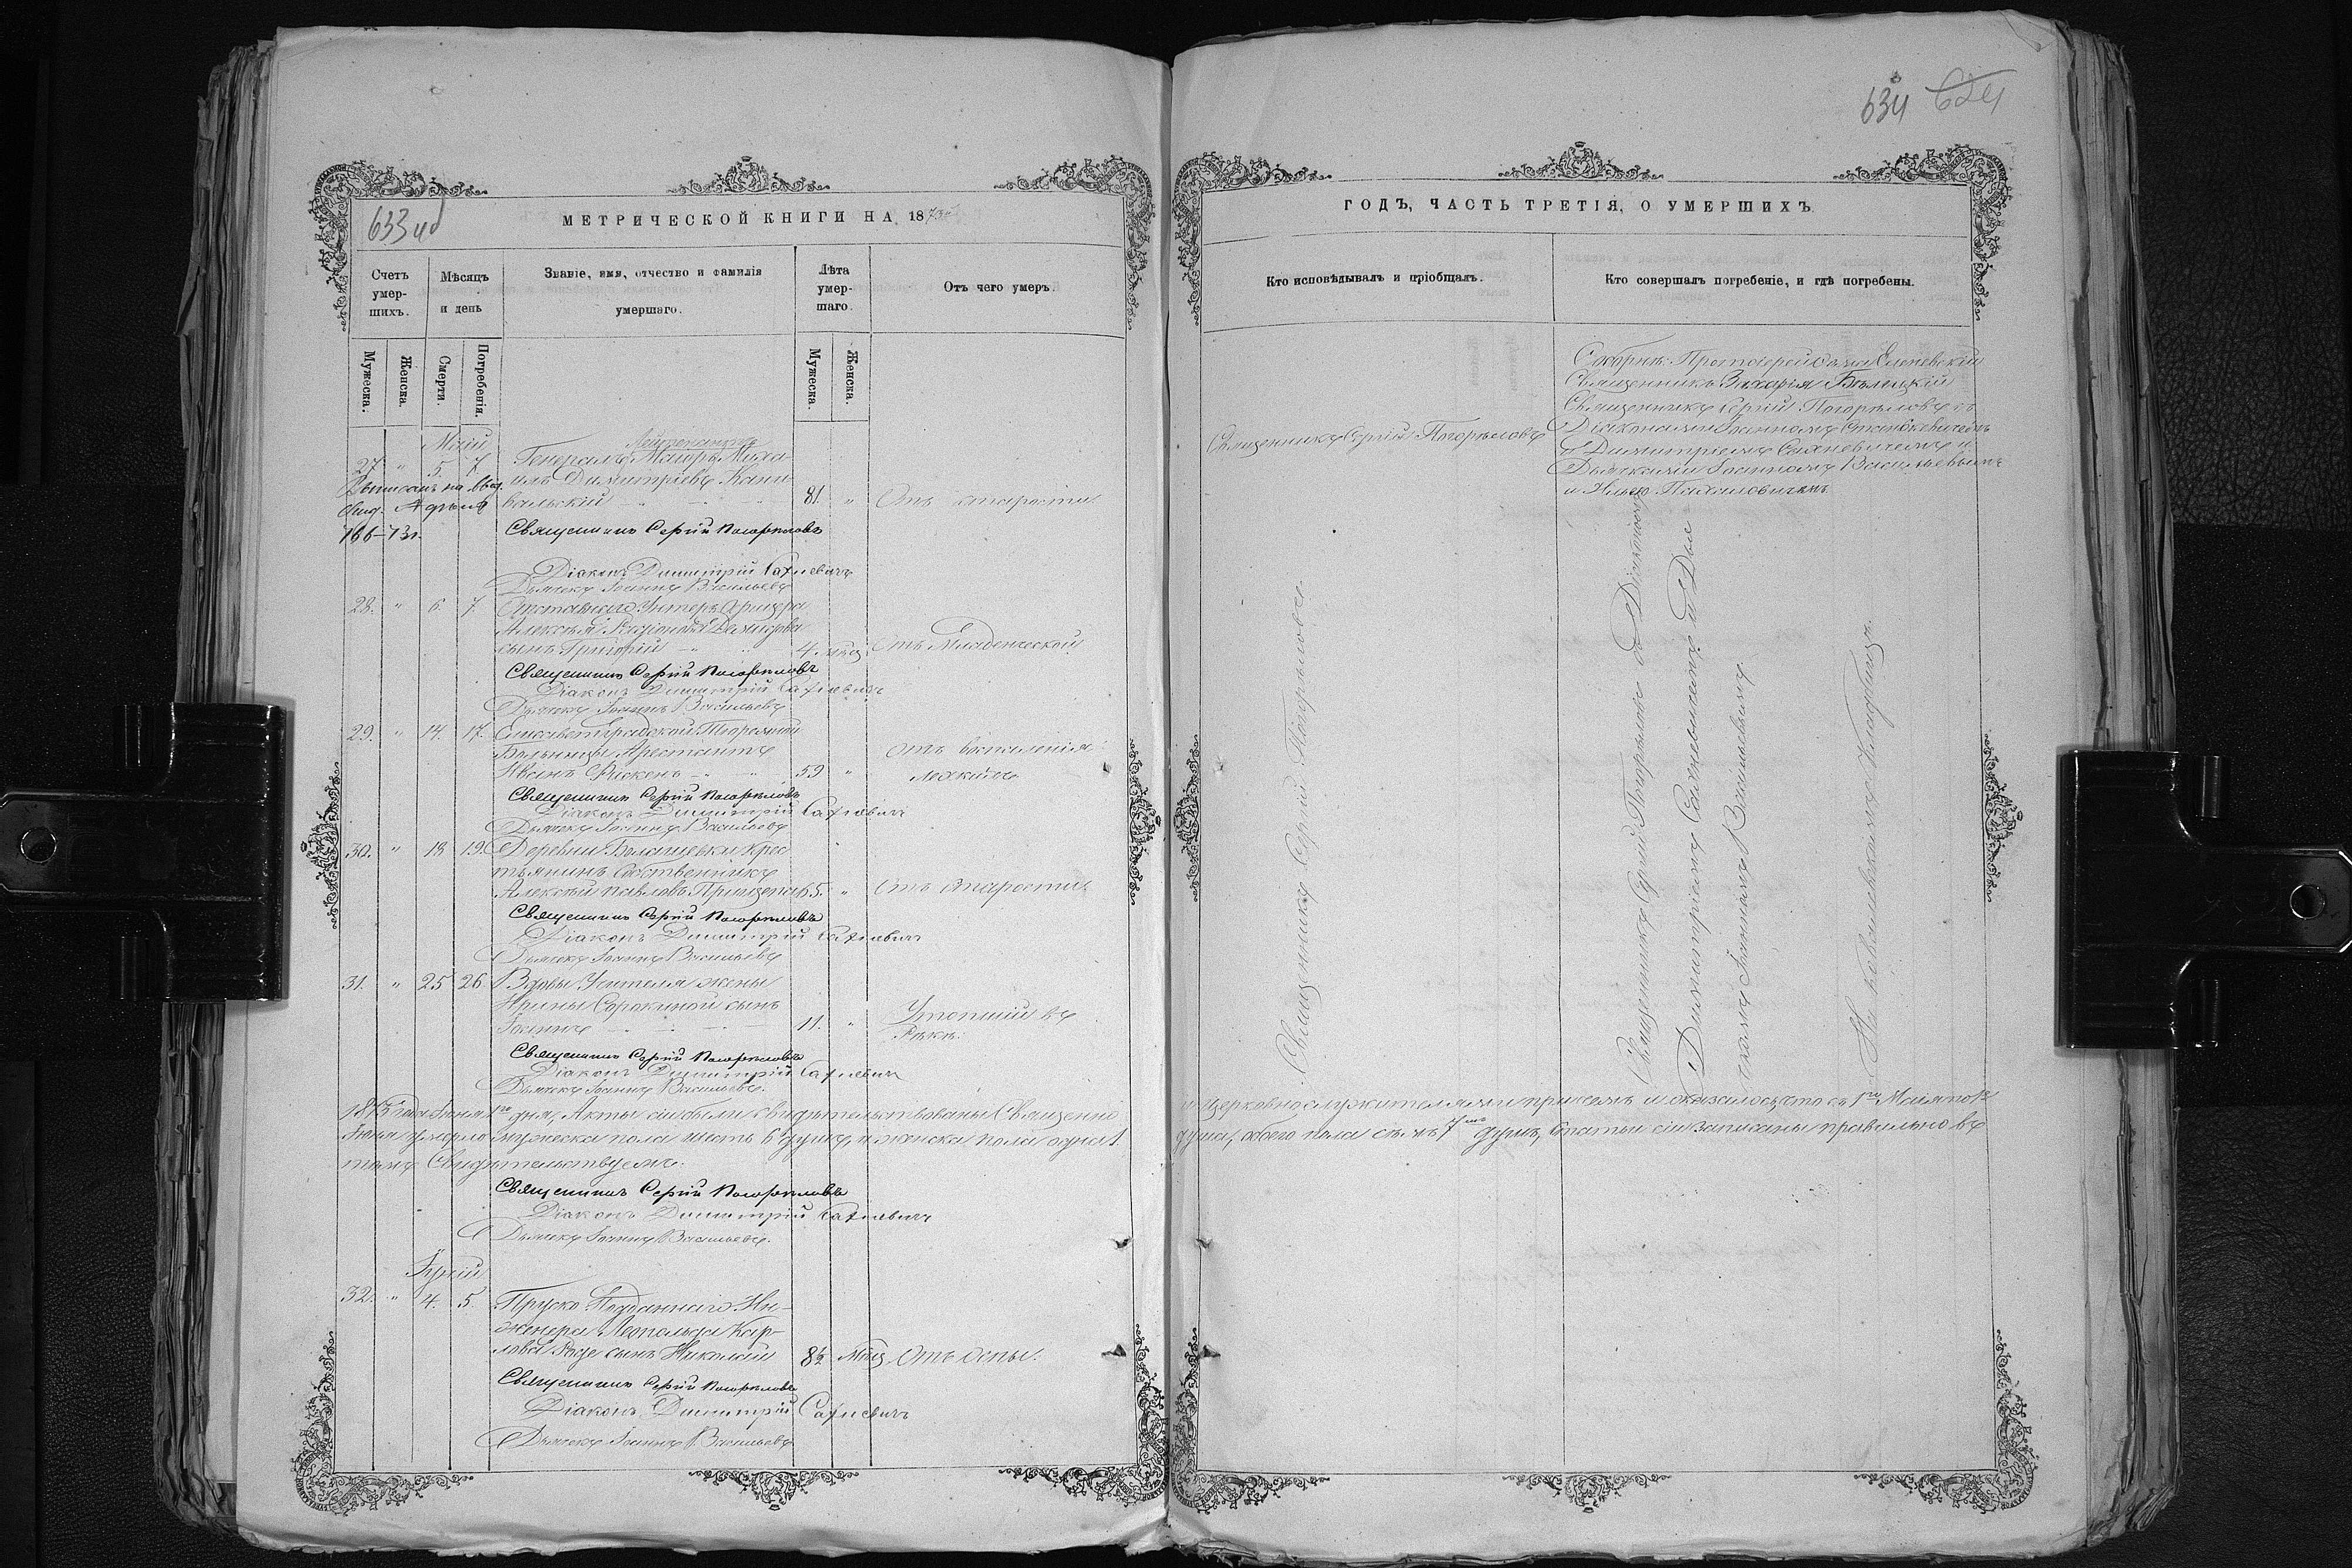 633 об
МЕТРИЧЕСКОЙ КНИГИ НА 1873й
Счетъ умершихъ.
Мѣсяцъ и день
Званіе, имя, отчество и фамилія умершаго.
Лѣта умершаго.
Отъ чего умеръ.
Мужеска.
Женска.
Смерти.
Погребенія.
Мужеска.
Женска.
Май
27. " 5. 7. Генералъ Маіоръ Миха-
илъ Димитріевъ Кани-
вальскій 81. " Отъ старости
166-73г.
Священникъ Сергій Погорѣловъ
Діаконъ Димитрій Сахневичъ
Дьячекъ Іоаннъ Васильевъ
28. " 6. 7. Отставнаго Унтеръ Офицера
Алексѣя
сынъ Григорій 4. мѣс. Отъ Младенческой
Священникъ Сергій Погорѣловъ
Діаконъ Димитрій Сахневичъ
Дьячекъ Іоаннъ Васильевъ
29. " 14. 17. Елисаветградской Тюремной
Больницы Арестантъ
Иванъ 59 " отъ воспаленія
легкихъ
Священникъ Сергій Погорѣловъ
Діаконъ Димитрій Сахневичъ
Дьячекъ Іоаннъ Васильевъ
30. " 18 19. Деревни Крес-
тьянинъ Собственникъ
Алексѣй Павловъ Прищепа 65. " Отъ старости
Священникъ Сергій Погорѣловъ
Діаконъ Димитрій Сахневичъ
Дьячекъ Іоаннъ Васильевъ
31. " 25 26 Вдовы Учителя жены
Ирины Сорокиной сынъ
Іоаннъ 11. " Утопшій въ
Рѣкѣ.
Священникъ Сергій Погорѣловъ
Діаконъ Димитрій Сахневичъ
Дьячекъ Іоаннъ Васильевъ.
1873 года Іюня 1го дня, Акты сіи были свидѣтельствованы Священно
Іюня умерло мужеска пола шесть 6 душъ, и женска пола одна 1.
томъ Свидѣтельствуемъ.
Священникъ Сергій Погорѣловъ
Діаконъ Димитрій Сахневичъ
Дьячекъ Іоаннъ Васильевъ.
Іюній
32. " 4. 5. Пруско Подданнаго Ин-
женера Леопольда Кар-
лова сынъ Николай 8½ Мѣсц. Отъ оспы.
Священникъ Сергій Погорѣловъ
Діаконъ Димитрій Сахневичъ
Дьячекъ Іоаннъ Васильевъ
634
ГОДЪ, ЧАСТЬ ТРЕТІЯ, О УМЕРШИХЪ
Кто исповѣдывалъ и пріобщалъ.
Кто совершалъ погребеніе, и гдѣ погребены.
Священникъ Сергій Погорѣловъ
Соборнѣ: Протоіерей
Священникъ Захарія Бѣлицкій
Священникъ Сергій Погорѣловъ съ
Діаконами Іоанномъ Станкевичемъ
и Димитріемъ Сахневичемъ и
Дьячками Іоанномъ Васильевымъ
Священникъ Сергій Погорѣловъ
Священникъ Сергій Погорѣловъ съ Діакономъ
Димитріемъ Сахневичемъ и Дья
чкомъ Іоанномъ Васильевымъ
На Ковалевскомъ Кладбищѣ.
и церковнослужителями приходъ и оказалось, что съ 1го Мая по 1е
душа, обоего пола семь 7мь душъ, статьи сіи записаны правильно въ